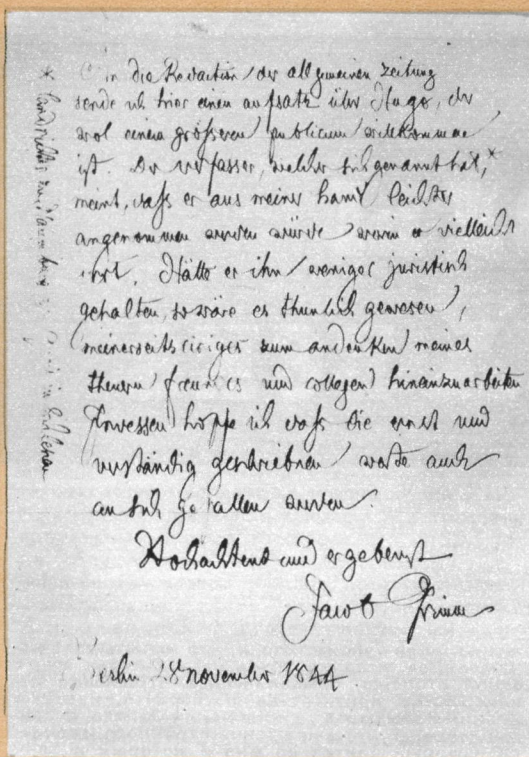 An die Redaction der allgemeinen zeitung
sende ich hier einen aufsatz über Hugo, der
wol einem größeren publicum willkommen
ist. Der verfasser, welcher sich genannt hat,*
meint, dass er aus meiner hand leichter
angenommen werden würde worin er vielleicht
irrt. Hätte er ihn weniger juristisch
gehalten, so wäre es thunlich gewesen,
meinerseits einiges zum andenken meines
theuern freundes und collegen hineinzuarbeiten
Inwessen hoffe ich dass die ernst und
verständig geschriebnen worte auch
an sich gefallen werden.
Hochachtend und ergebenst
Jacob Grimm
Berlin 28 november 1844
* landrichter